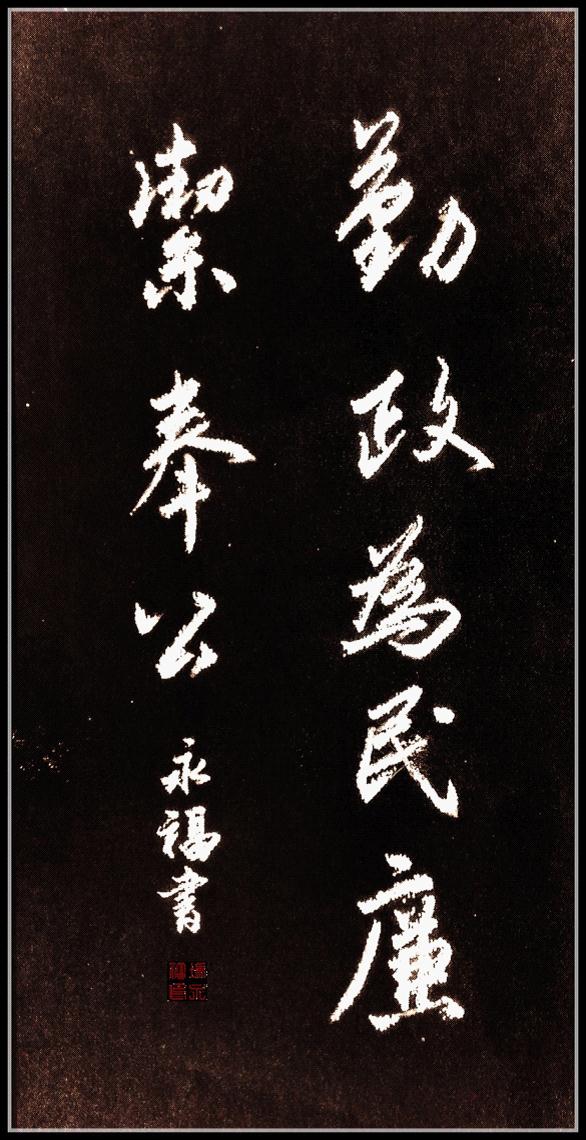 勤政為民廉
潔奉公
永福書